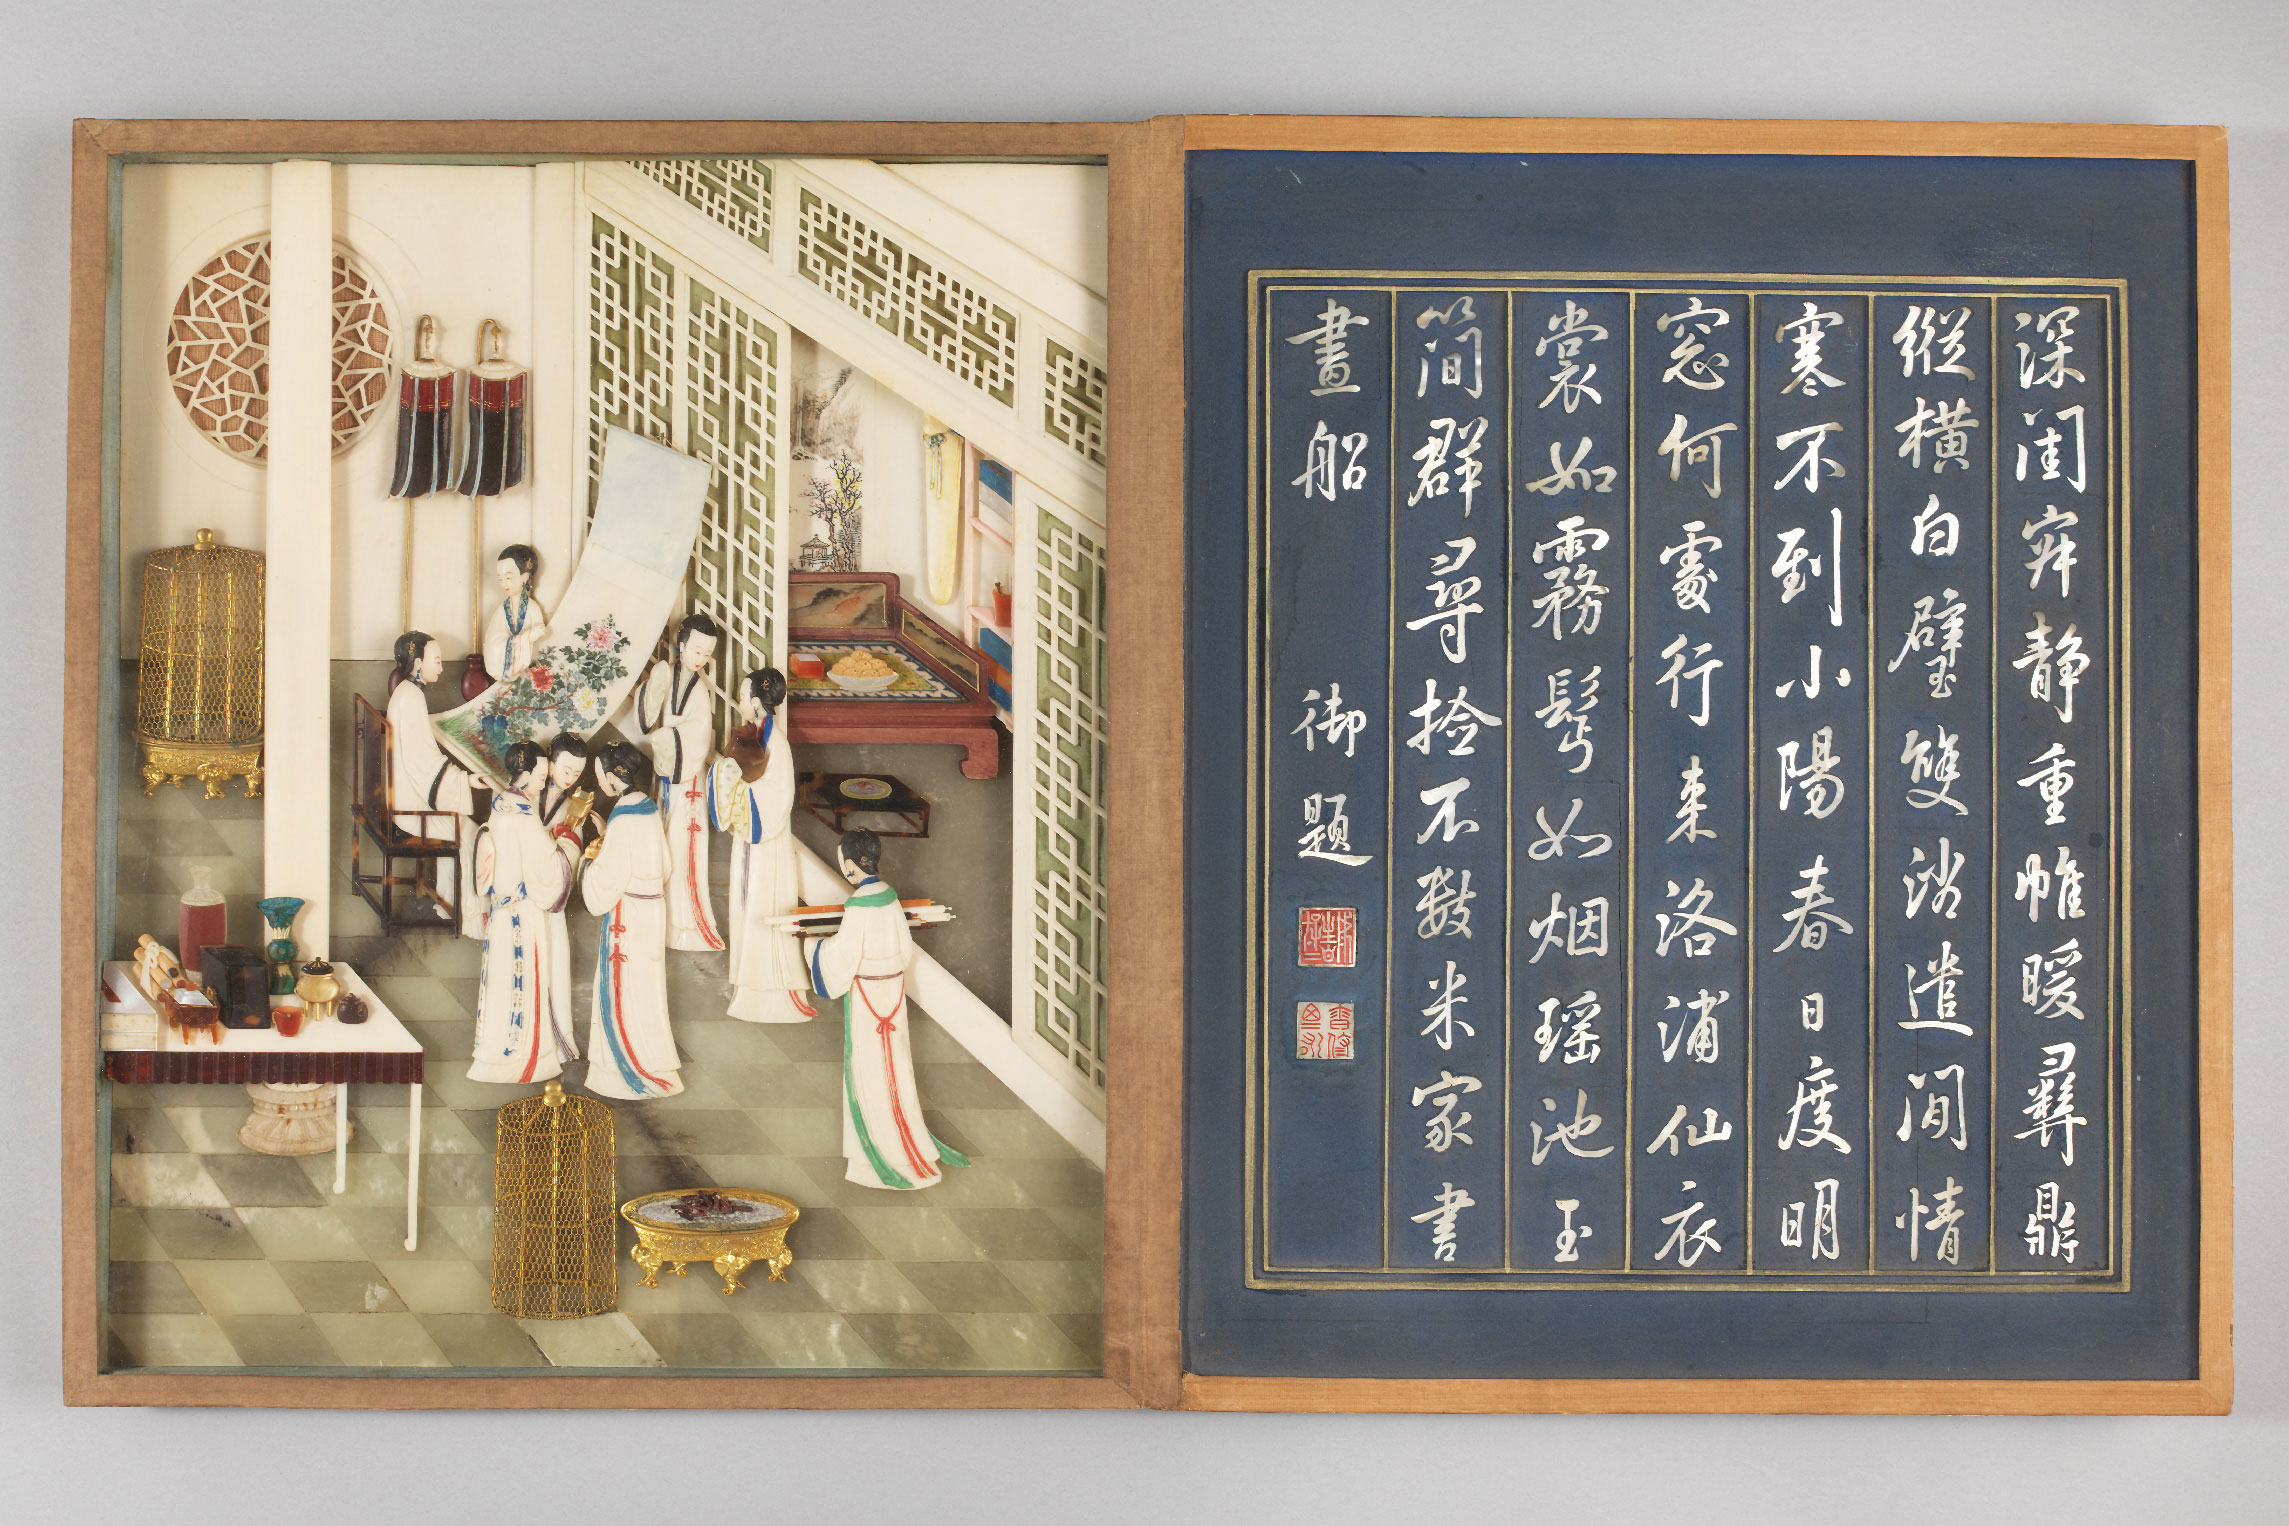 深閨寂静重帷暖彝鼎
縱橫白璧雙遣閒情
寒不到小陽春日度明
窓何處行来洛浦仙衣
裳如霧鬢如烟瑶池玉
簡群尋撿不數米家書
畫船 御題